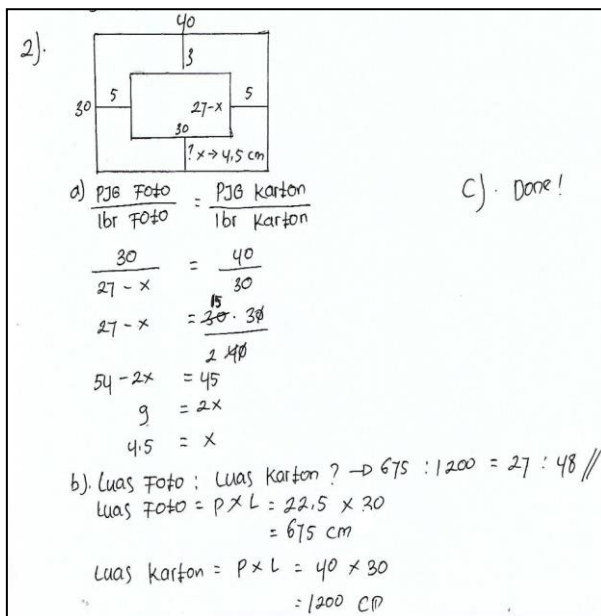 2).
40
3
30
5
27-x
5
30
? x → 4,5 cm
a) PJG FOTO / lbr FOTO = PJG Karton / lbr Karton
30 / 27 - x = 40 / 30
27 - x = 15 30 · 30 / 2 40
54 - 2x = 45
9 = 2x
4.5 = x
b). Luas FOTO : Luas Karton ? → 675 : 1200 = 27 : 48 //
Luas FOTO = P x L = 22,5 x 30
= 675 cm
Luas Karton = P x L = 40 x 30
= 1200 cm
C). Done!